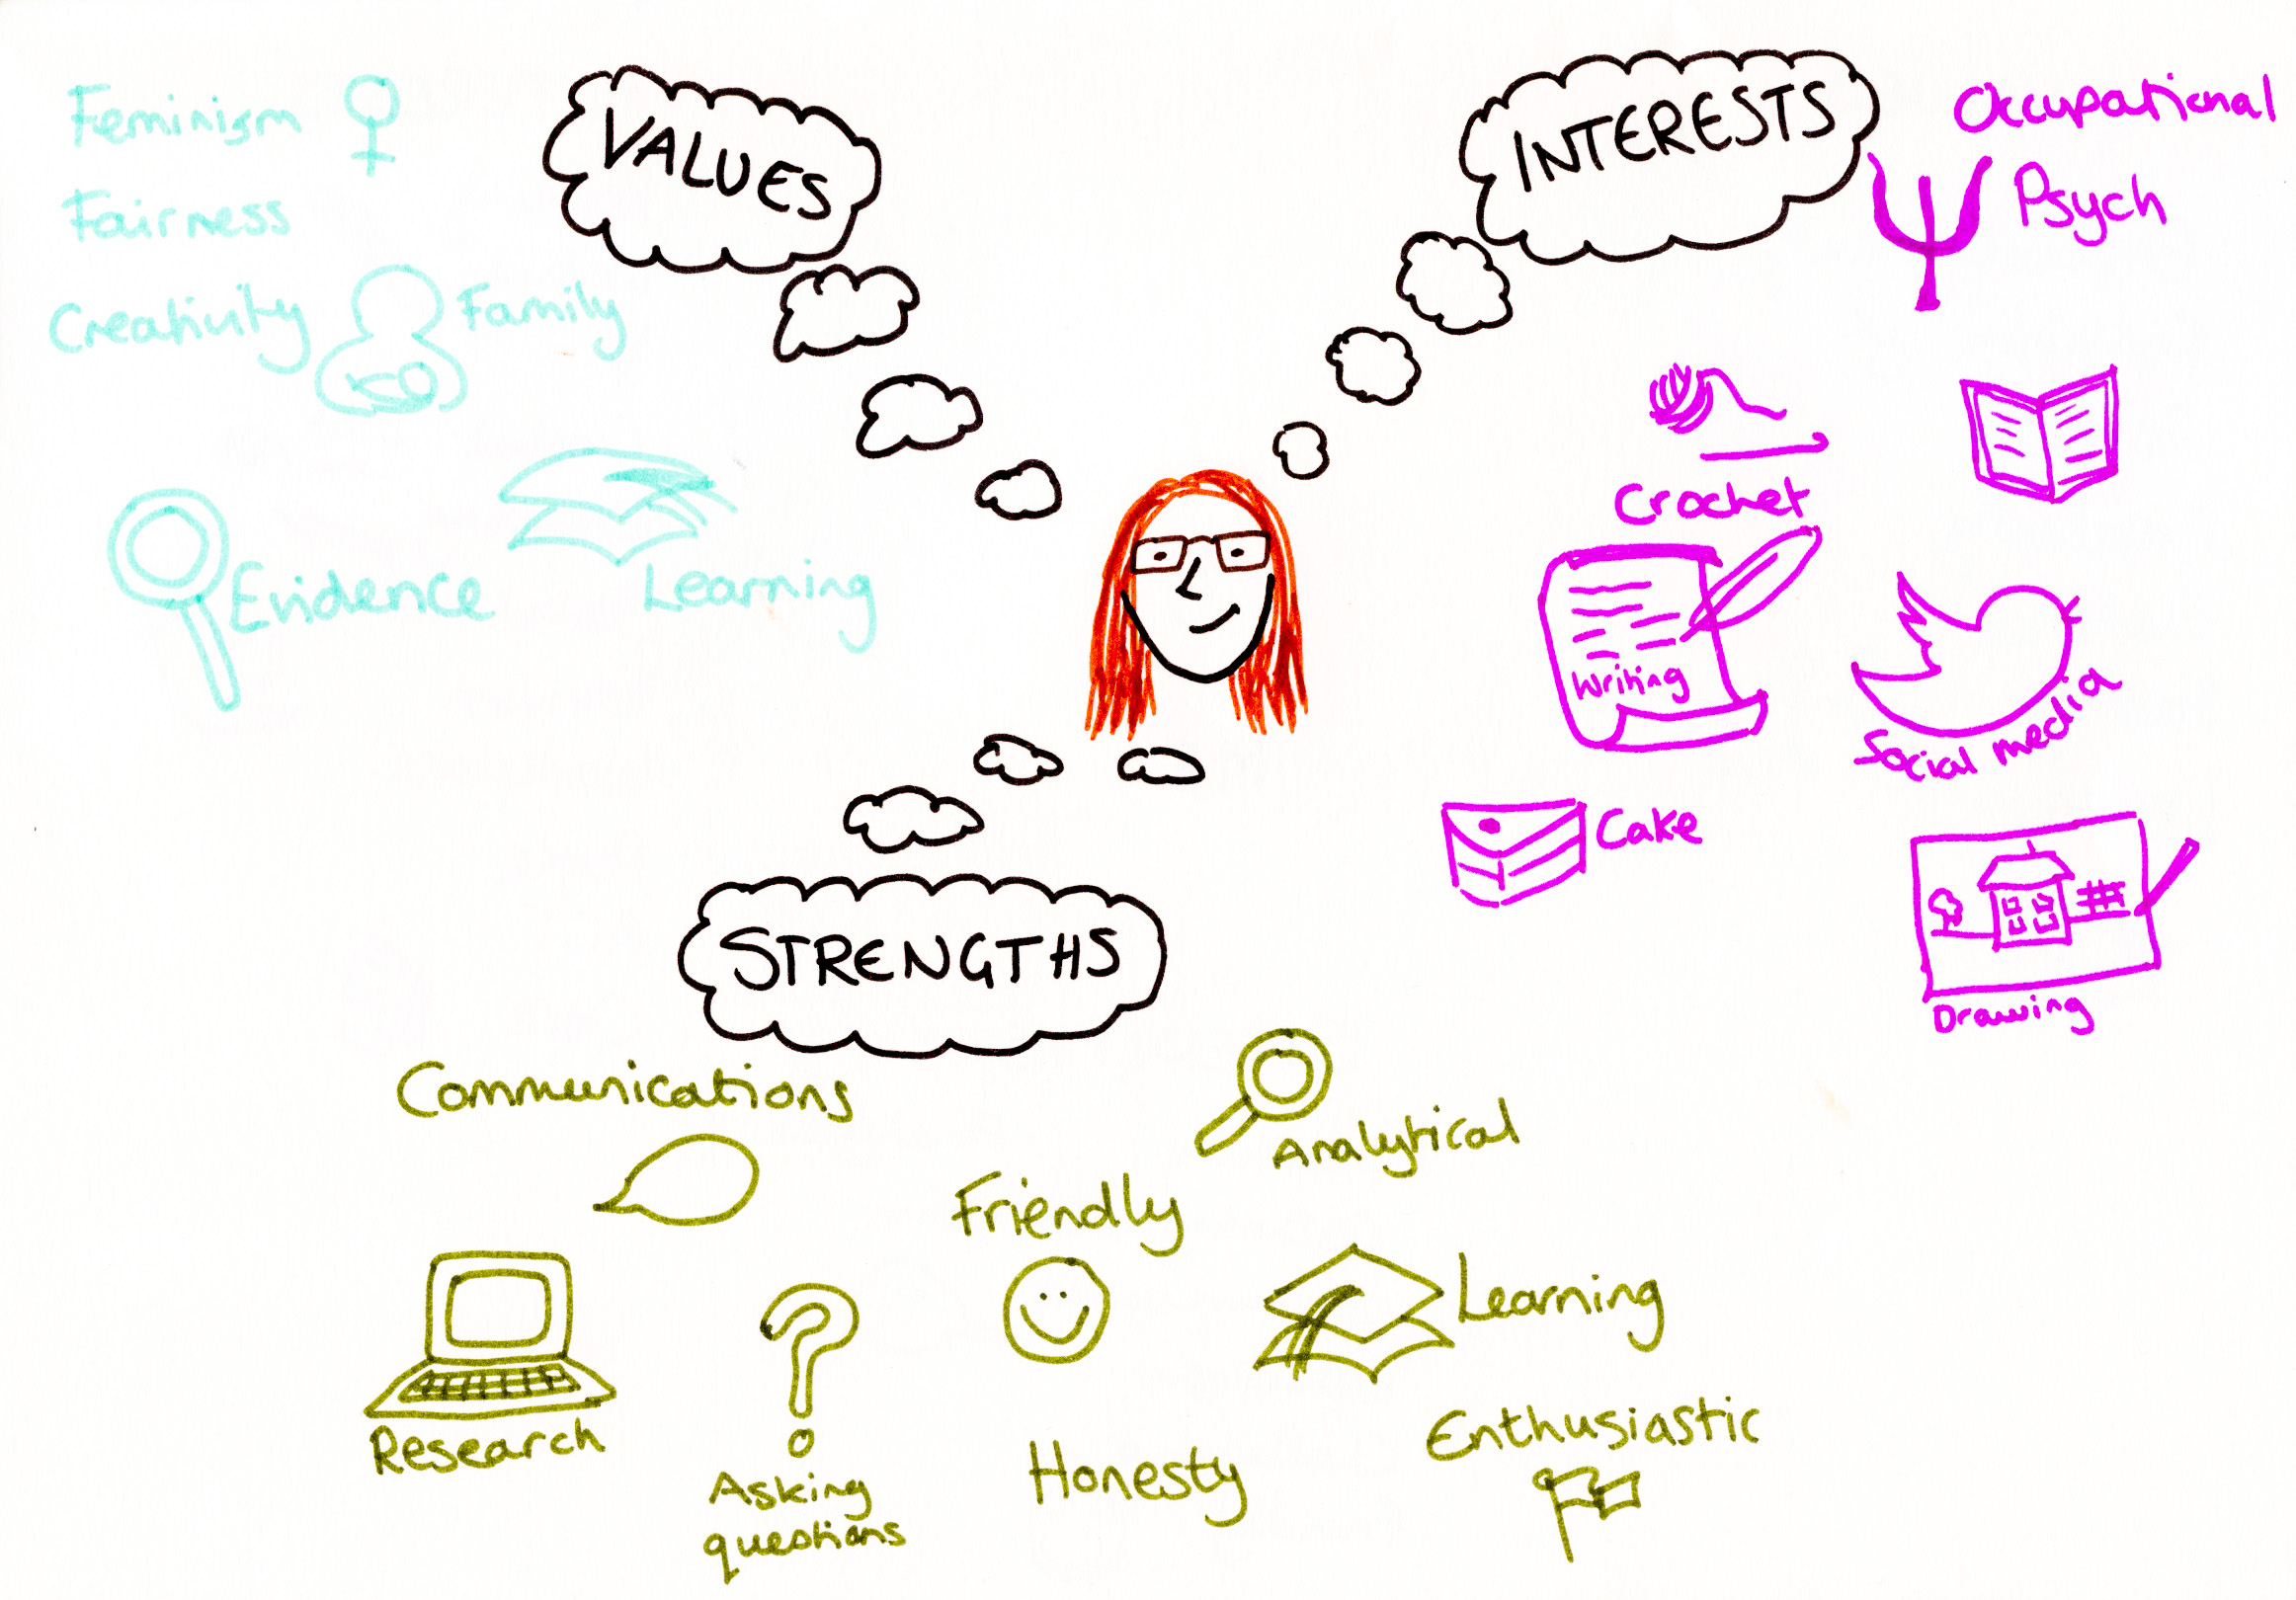 VALUES
Feminism
Fairness
Creativity
Family
Evidence
Learning
INTERESTS
Occupational
Psych
Crochet
Writing
Social media
Cake
Drawing
STRENGTHS
Communications
Analytical
Friendly
Learning
Research
Asking
questions
Honesty
Enthusiastic